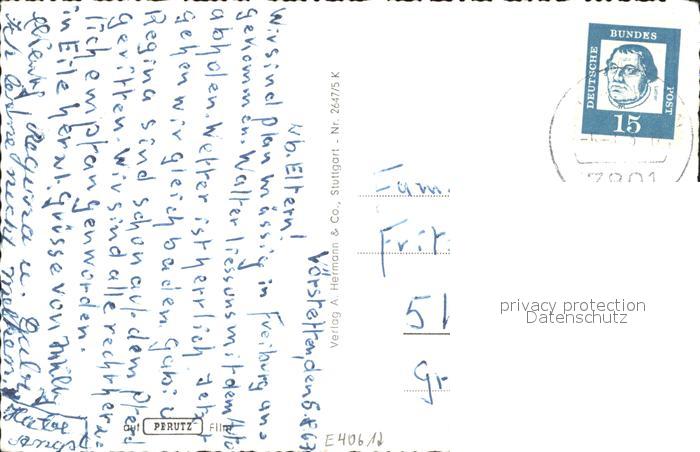 Vörstetten den 6.7.67
Lb. Eltern!
Wir sind planmässig in Freiburg an=
gekommen. Walter liess uns mit dem Auto
abholen. Wetter ist herrlich. Jetzt
gehen wir gleich baden. Gabi u
Regina sind schon auf dem Pferd
geritten. Wir sind alle recht herz=
lich empfangen worden.
in Eile herzl. Grüsse von
Regina u.
Verlag A. Hermann & Co., Stuttgart - Nr. 2647/5 K
auf PERUTZ Film
E40612
DEUTSCHE BUNDES POST
15
7801
Fam.
Frit
51
Gr
privacy protection
Datenschutz